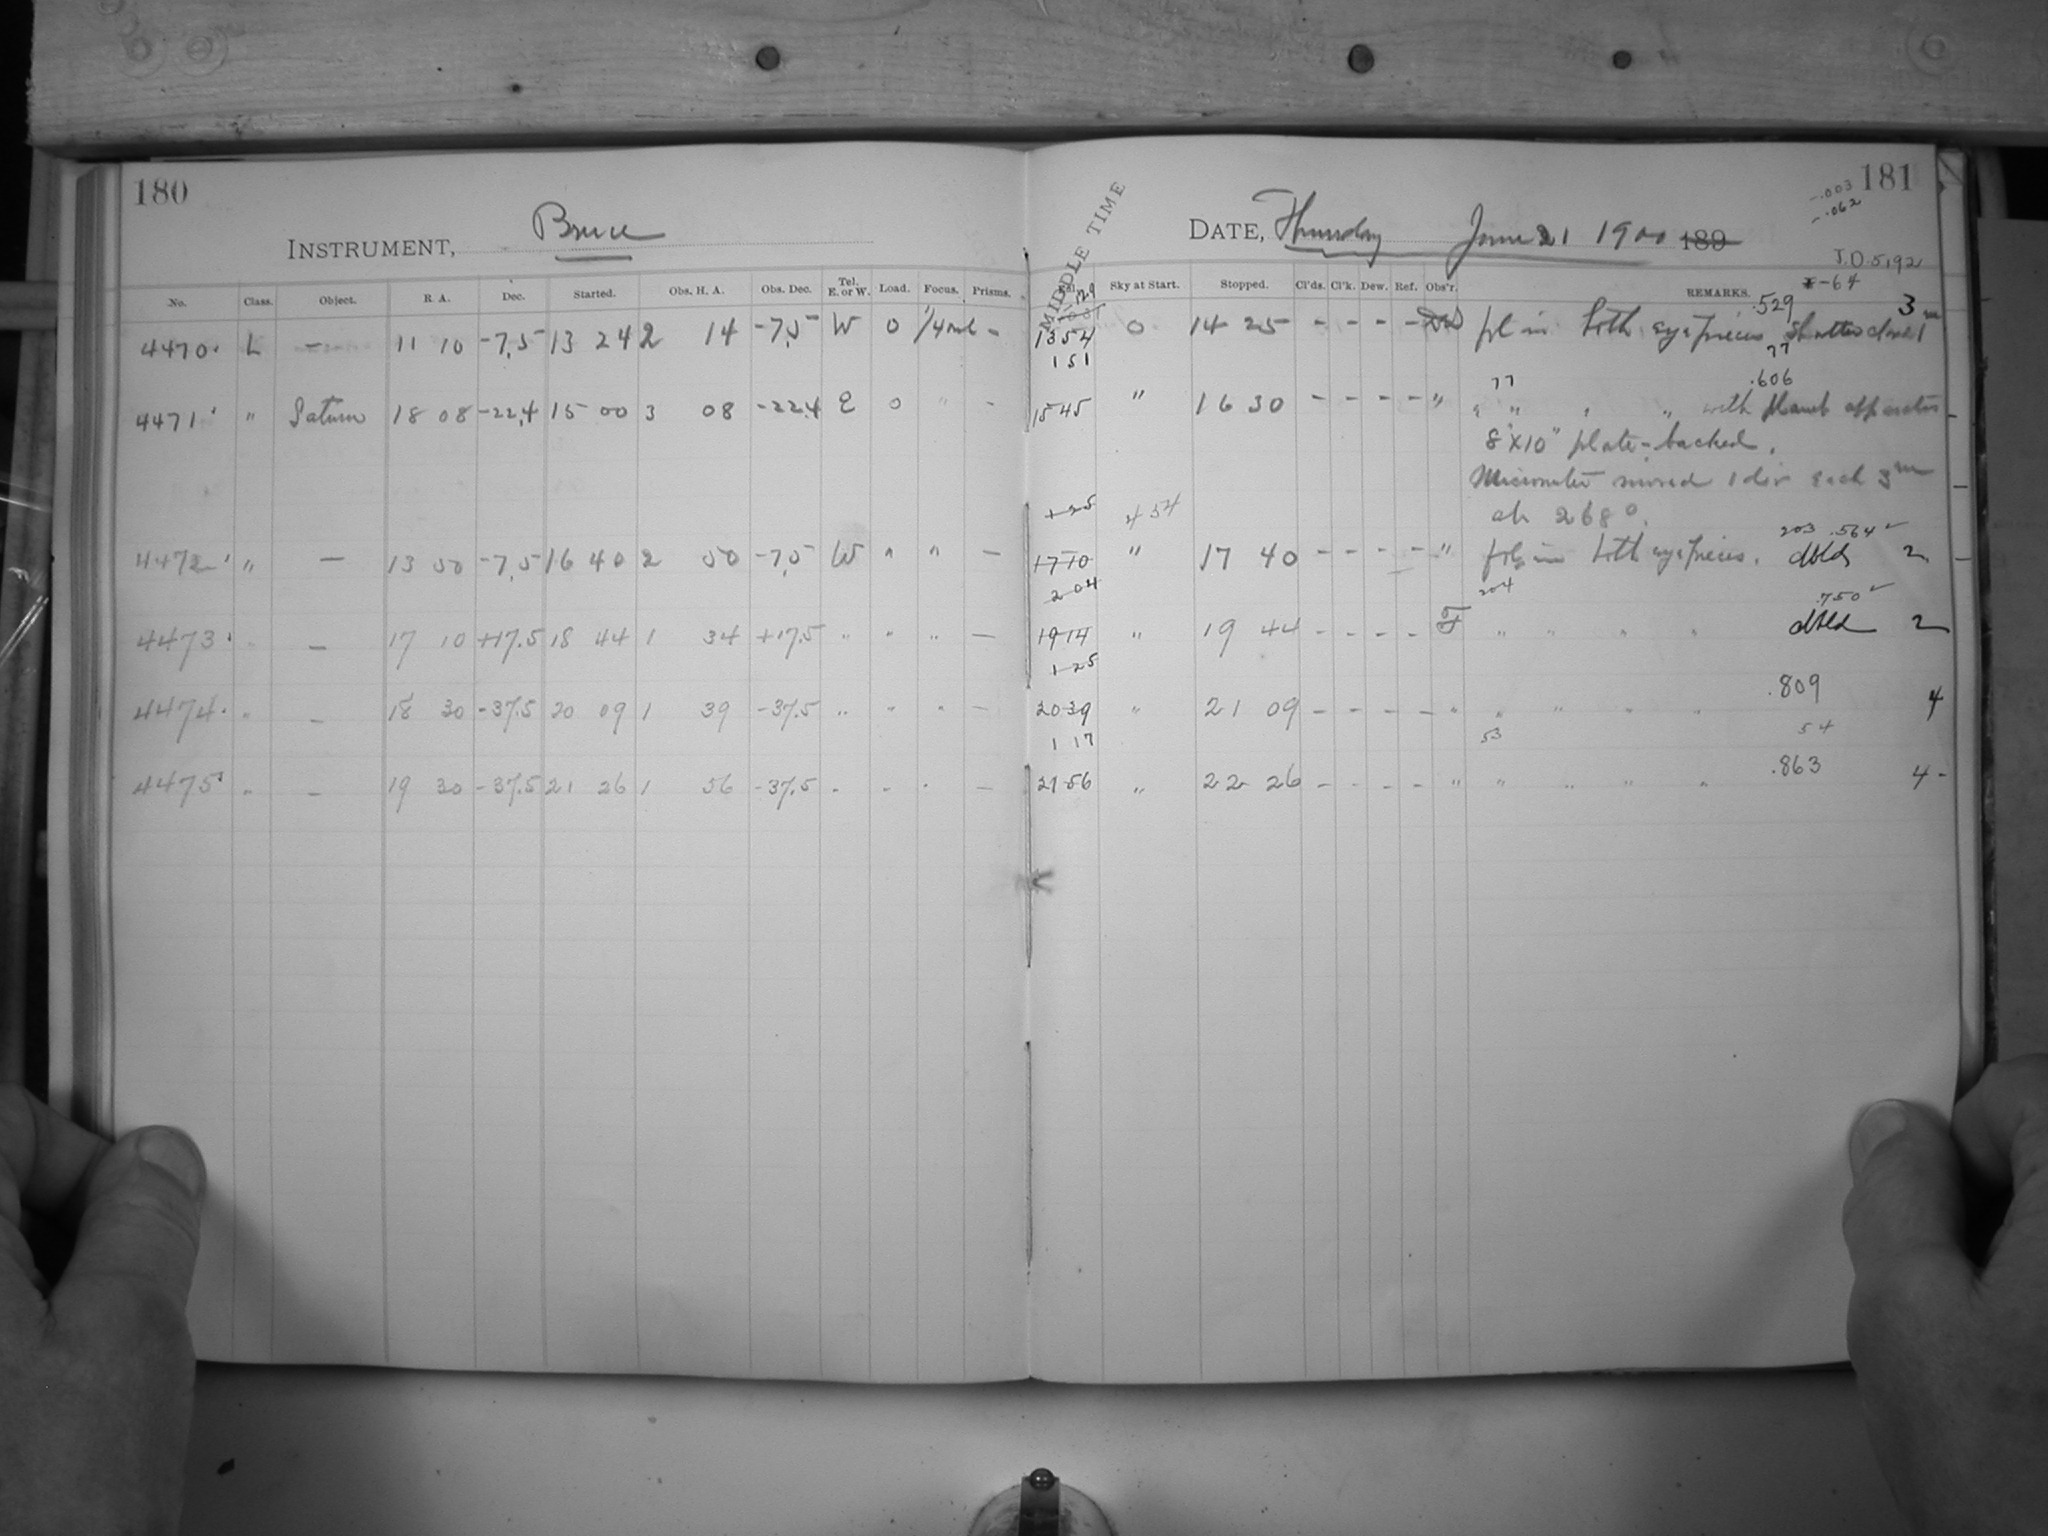 180
INSTRUMENT, Bruce
No. Class. Object. R. A. Dec. Started. Obs. H. A. Obs. Dec. Tel. E. or W. Load. Focus. Prisms.
4470 L — 11 10 -7.5 13 24 2 14 -7.5 W 0 —
4471 " Saturn 18 08 -22.4 15 00 3 08 -22.4 E 0 " -
4472 " — 13 50 -7.5 16 40 2 50 -7.5 W " " —
4473 " — 17 10 +17.5 18 44 1 34 +17.5 " " " —
4474 " — 18 30 -37.5 20 09 1 39 -37.5 " " " —
4475 " — 19 30 -37.5 21 26 1 56 -37.5 " " " —
181
-.003
-.062
MIDDLE TIME
DATE, Thursday June 21 1900 189
J.D. 5192
-64
Sky at Start. Stopped. Cl'ds. Cl'k. Dew. Ref. Obs'r. REMARKS.
.529 3
1354 0 14 25 - - - - pl in both eyepieces Shutter closed 1m
151 77
77 .606
1545 " 16 30 - - - - " " " " " with plumb apparatus
8"x10" plate-backed.
Micrometer moved 1 div each 3m
at 268°.
125 454
203 .564
1710 " 17 40 - - - - " in both eyepieces. dbld 2
204 204
.750
1914 " 19 44 - - - - F " " " " dbld 2
125
.809
2039 " 21 09 - - - - " " " " " 4
117 53 54
.863
2156 " 22 26 - - - - " " " " " 4-